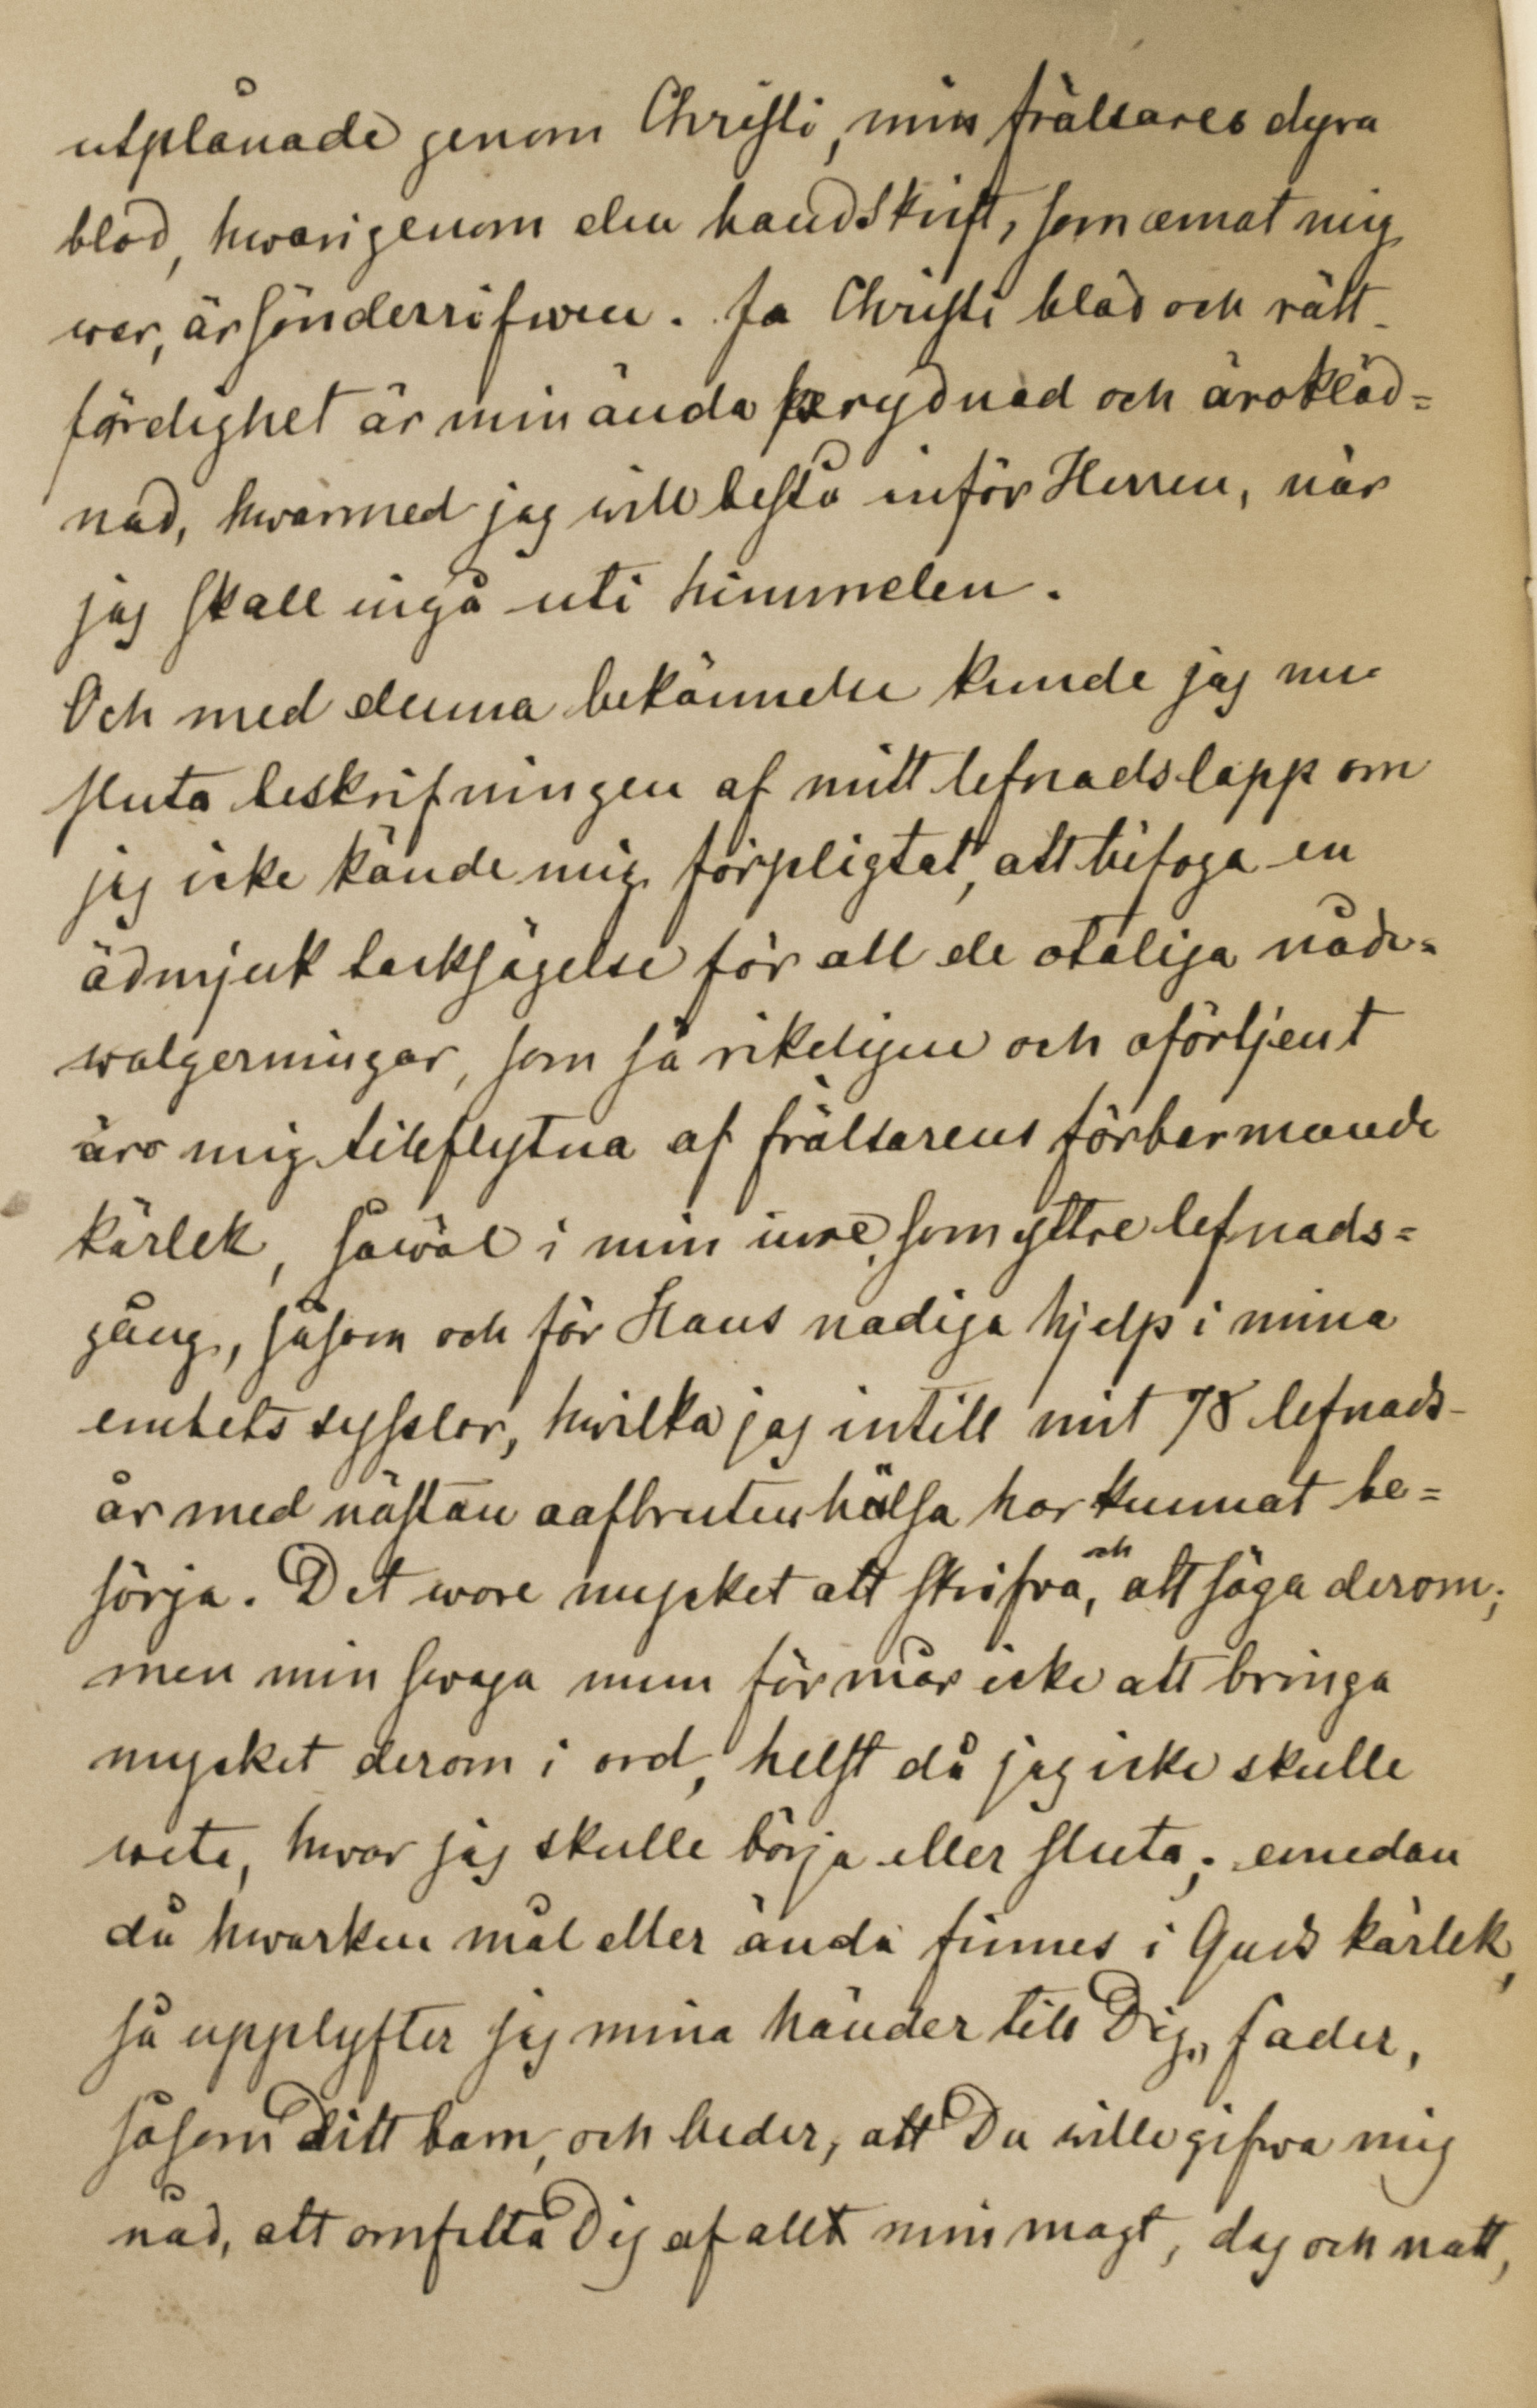 utplånade genom Christi, min frälsares dyra
blod, hwarigenom den handskrift, som emot mig
war, är sönderrifwen. Ja Christi blod och rätt-
färdighet är min ända prydnad och ärokläd=
nad, hwarmed jag will bestå inför Herren, när
jag skall ingå uti himmelen.
Och med denna bekännelse kunde jag nu
sluta beskrifningen af mitt lefnadslopp om
jag icke kände mig förpligtat, att bifoga en
ädmjuk tacksägelse för all de otaliga nåde=
wälgerningar, som så rikeligen och oförtjent
äro mig tillflytna af frälsarens förbarmande
kärlek, såwäl i min inre, som yttre lefnads=
gång, såsom och för Hans nådiga hjelp i mina
embets sysslor, hwilka jag intill mit 78 lefnads-
år med nästan oafbruten hälsa har kunnat be=
sörja. Det wore mycket att skrifva, och att säga derom;
men min swaga mun förmår icke att bringa
mycket derom i ord, helst då jag icke skulle
weta, hwar jag skulle börja eller sluta; emedan
då hwarken mål eller ända finnes i Guds kärlek,
så upplyfter jag mina händer till Dig, fader,
såsom Ditt barn, och beder, att Du wille gifwa mig
nåd, att omfatta Dig af allt min magt, dag och natt,